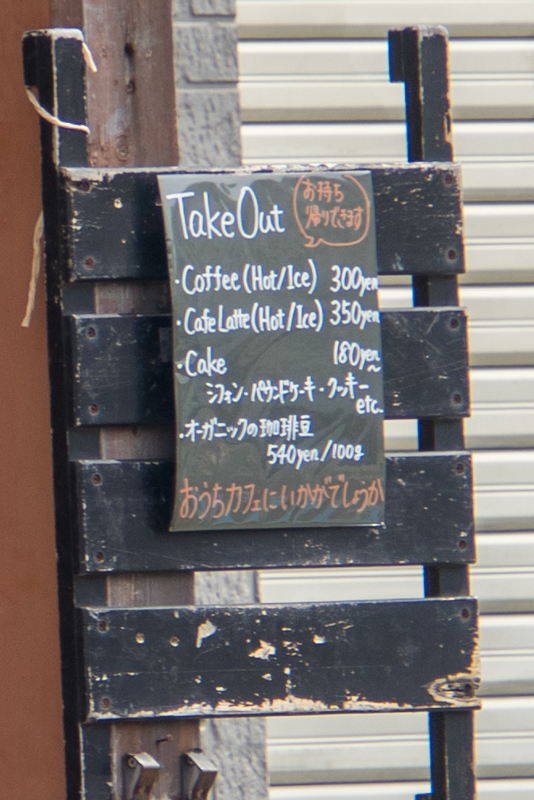 Take Out
お持ち
帰りできます
・Coffee (Hot/Ice) 300yen
・Cafe Latte (Hot/Ice) 350yen
・Cake 180yen~
シフォン・パウンドケーキ・クッキー
etc.
・オーガニックの珈琲豆
540yen/100g
おうちカフェにいかがでしょうか